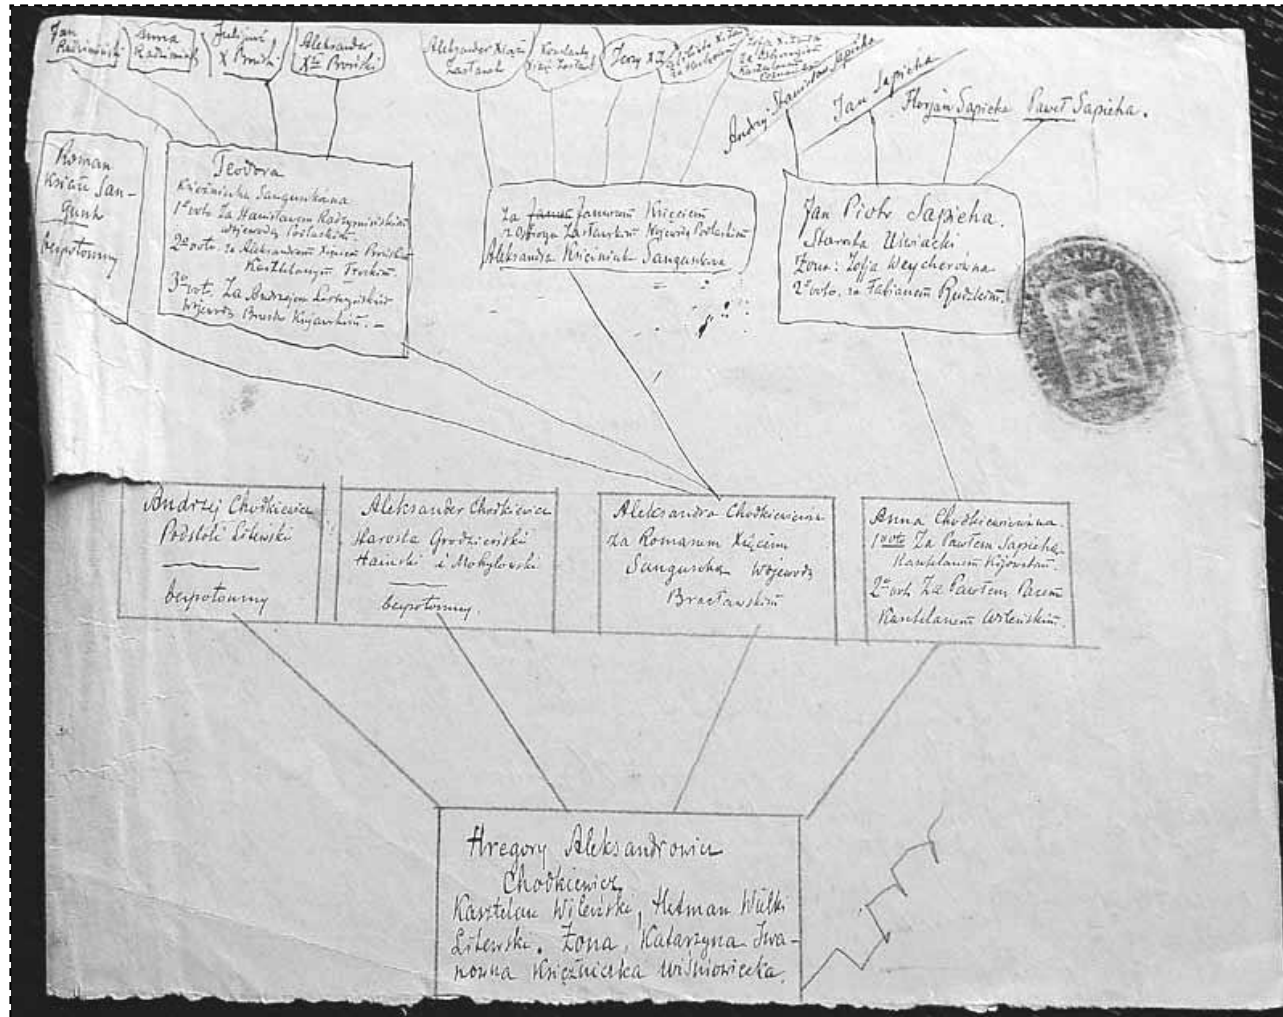 Jan
Radzimiński
Anna
Aleksander
Xże Proński
Aleksander Książę
Zasławski
Konstanty
Książę Zasławski
Jerzy X Z
Andrzej Stanisław Sapieha
Jan Sapieha
Florjan Sapieha
Paweł Sapieha.
Roman
Książe San-
Guszko
bezpotomny
Teodora
Księżniczka Sanguszkówna
1º voto Za Stanisławem Radzymińskim
wojewodą Podlaskim.
2º voto. za Aleksandrem Księciem Prońskim
Kasztelanem Trockim.
3º vot. Za Andrzejem Leszczyńskim
wojewodą Brzesko Kujawskim. –
Za Janus Januszem Księciem
z Ostroga Zasławskim Wojewodą Podlaskim
Aleksandra Księżniczka Sanguszkow
Jan Piotr Sapieha.
Starosta Uświacki
Żona: Zofja Weycherówna
2º voto. za Fabianem
Andrzej Chodkiewicz
Podstoli Litewski
bezpotomny
Aleksander Chodkiewicz
Starosta Grodzieński
i Mohylowski
bezpotomny.
Aleksandra Chodkiewiczówna
za Romanem Xięciem
Sanguszką Wojewodą
Bracławskim
Anna Chodkiewiczówna
1º voto Za Pawłem Sapiehą
Kasztelanem Kijowskim.
2º voto Za Pawłem Pacem
Kasztelanem Wileńskim.
Hregory Aleksandrowicz
Chodkiewicz
Kasztelan Wileński, Hetman Wielki
Litewski. Żona, Katarzyna Iwa-
nowna Księżniczka Wiśniowiecka.